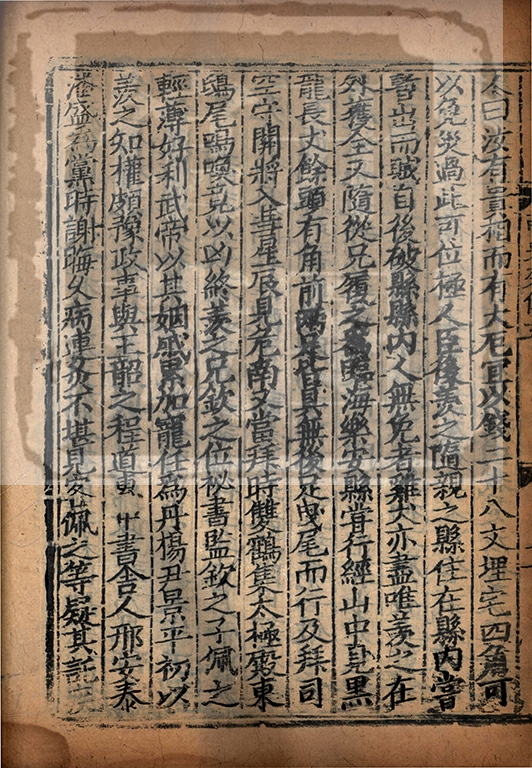 今曰汝有貴相而有大厄宜以錢二十八文埋宅四角可
以免災過此可位極人臣後羨之隨親之縣住在縣內嘗
暫出而賊自後破縣縣內人無免者雞犬亦盡唯羨之在
外獲全又隨從兄履之為臨海樂安縣嘗行經山中見黑
龍長丈餘頭有角前兩足皆具無後足曳尾而行及拜司
空守關將入彗星辰見危南又當拜時雙鸛集太極殿東
鴟尾鳴喚竟以凶終羨之兄欽之位祕書監欽之子佩之
輕薄好利武帝以其姻戚累加寵任為丹楊尹景平初以
羨之知權頗豫政事與王韶之程道惠中書舍人邢安泰
潘盛為黨時謝晦久病連灸不堪見客佩之等疑其託